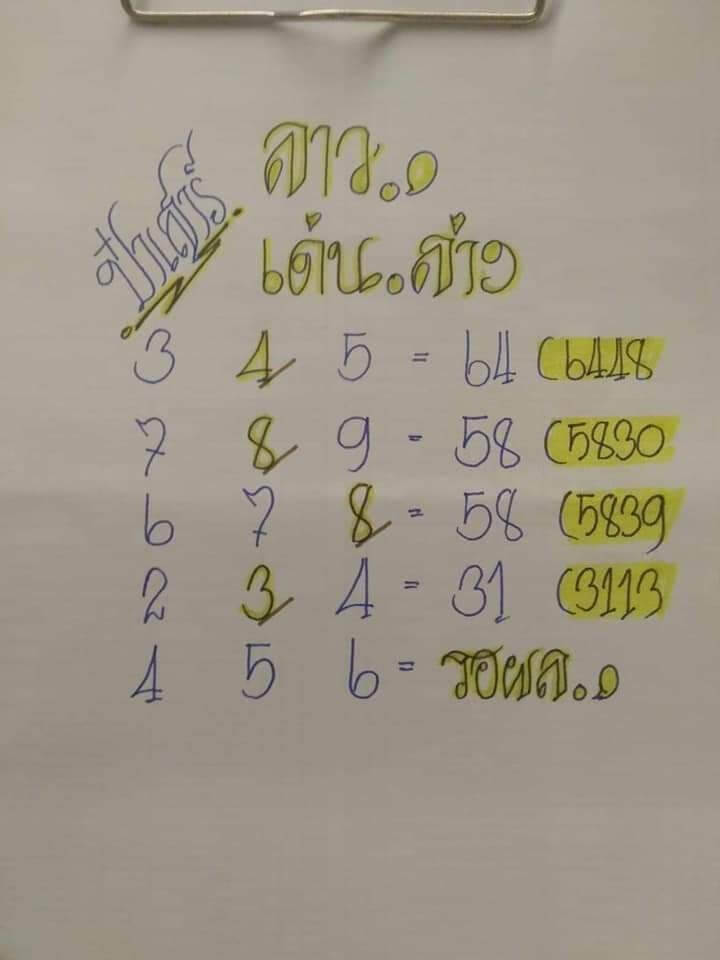 ป๋าเสาร์
ลาว.๑
เด่น.ล่าง
3 4 5 = 64 (6448
7 8 9 = 58 (5830
6 7 8 = 58 (5839
2 3 4 = 31 (3113
4 5 6 = รอผล.๑